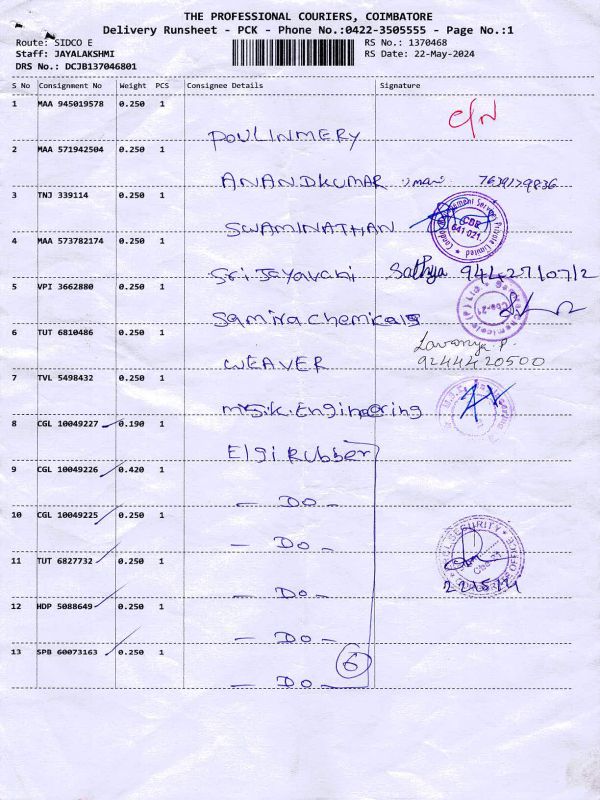 THE PROFESSIONAL COURIERS, COIMBATORE
Delivery Runsheet - PCK - Phone No.:0422-3505555 - Page No.:1
Route: SIDCO E
RS No.: 1370468
Staff: JAYALAKSHMI
RS Date: 22-May-2024
DRS No.: DCJB137046801
S No Consignment No Weight PCS Consignee Details Signature
1 MAA 945019578 0.250 1 POULINMERY C/N
2 MAA 571942504 0.250 1 ANANDKUMAR
3 TNJ 339114 0.250 1 SWAMINATHAN
4 MAA 573782174 0.250 1 Sri Jayavani Sathya 94427/07/2
5 VPI 3662880 0.250 1 Samira Chemicals
6 TUT 6810486 0.250 1 WEAVER Lavanya.P 9244420500
7 TVL 5498432 0.250 1 M.S.K. Engineering
8 CGL 10049227 0.190 1 Elgi Rubber
9 CGL 10049226 0.420 1 - DO -
10 CGL 10049225 0.250 1 - DO -
11 TUT 6827732 0.250 1 - DO - 22/5/24
12 HDP 5088649 0.250 1 - DO -
13 SPB 60073163 0.250 1 - DO -
6